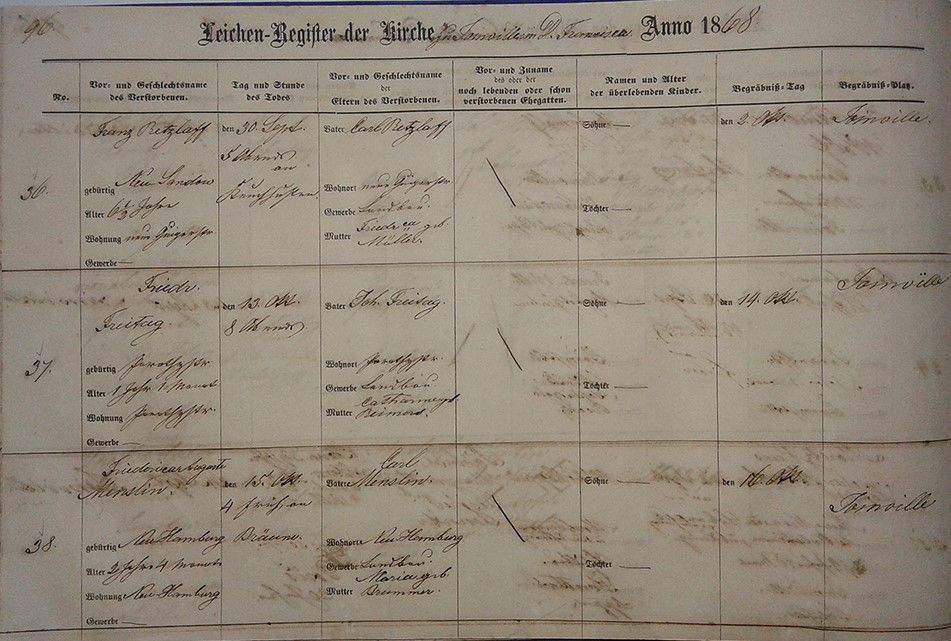 96.
Leichen-Register der Kirche zu Joinville in D. Francisca Anno 1868.
No.
Vor- und Geschlechtsname
des Verstorbenen.
Tag und Stunde
des Todes
Vor- und Geschlechtsname
der
Eltern des Verstorbenen.
Vor- und Zuname
des oder der
noch lebenden oder schon
verstorbenen Ehegatten.
Namen und Alter
der überlebenden Kinder.
Begräbniß-Tag
Begräbniß-Platz.
36.
Franz Retzlaff
gebürtig Neu Sandow
Alter 6½ Jahre
Wohnung neue
Gewerbe —
den 30. Sept.
5 Abends
an
Keuchhusten
Vater Carl Retzlaff
Wohnort neue
Gewerbe Landbau.
Mutter Friedr geb.
Müller.
Söhne —
Töchter —
den 2. Okt.
Joinville.
37.
Friedr.
Freitag.
gebürtig Dorothystr.
Alter 1 Jahr 1 Monat
Wohnung Dorothystr.
Gewerbe —
den 13. Okt.
8 Abends.
Vater Joh. Freitag.
Wohnort Dorothystr.
Gewerbe Landbau
Mutter Catharine geb.
Reimers.
Söhne —
Töchter —
den 14. Okt.
Joinville
38.
Friedericar Auguste
Menslin.
gebürtig Neu Hamburg
Alter 2 Jahre 4 Monate
Wohnung Neu Hamburg
Gewerbe —
den 15. Okt.
4 früh an
Bräune.
Vater Carl
Menslin.
Wohnort Neu Hamburg
Gewerbe Landbau.
Mutter Marie geb.
Brummer.
Söhne —
Töchter —
den 16. Okt.
Joinville